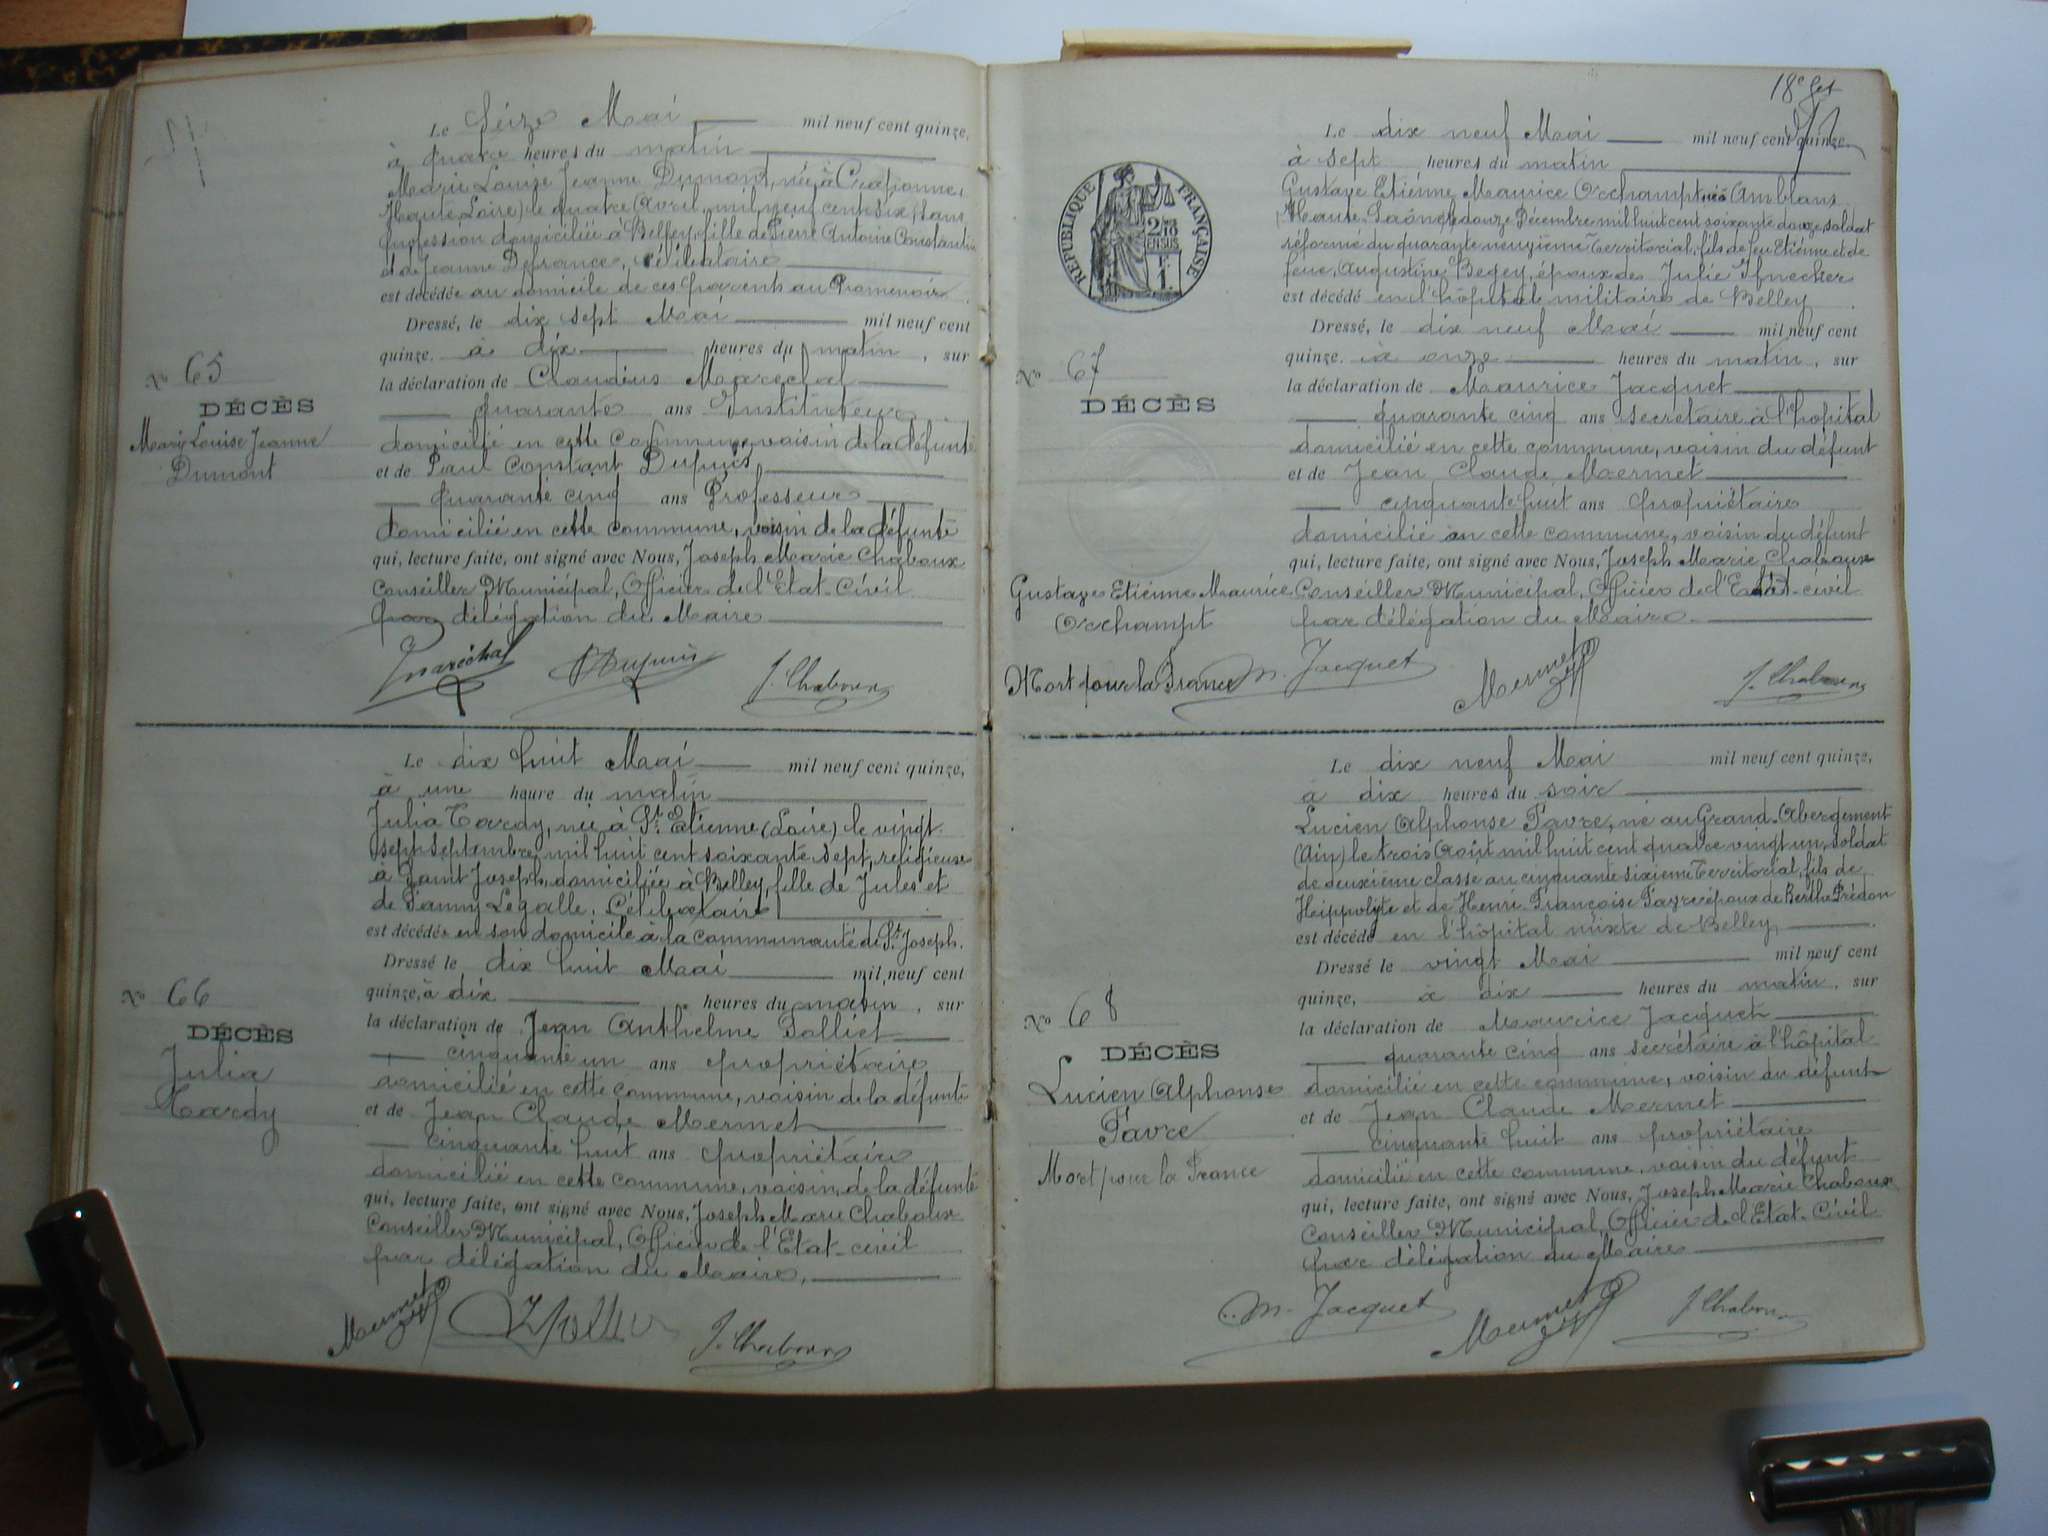 Le Seize Mai mil neuf cent quinze,
à quatre heures du matin
Marie Louise Jeanne Dumont, née à Craponne,
(Haute Loire) le quatre Avril mil neuf cent six, sans
profession domiciliée à Belley, fille de Pierre Antoine Constantin
et de Jeanne Defrance, célibataire
est décédée au domicile de ces parents au Promenoir
Dressé, le dix sept Mai mil neuf cent
quinze, à dix heures du matin, sur
la déclaration de Claudius Maréchal
quarante ans Instituteur
domicilié en cette commune, voisin de la défunte
et de Paul Constant Dupuis,
quarante cinq ans Professeur
domicilié en cette commune, voisin de la défunte
qui, lecture faite, ont signé avec Nous, Joseph Marie Chaboux
Conseiller Municipal, Officier de l'Etat-civil
par délégation du Maire
No 65
DÉCÈS
Marie Louise Jeanne
Dumont
Maréchal Dupuis J. Chaboux
Le dix huit Mai mil neuf cent quinze,
à une heure du matin
Julia Tardy, née à St Etienne (Loire) le vingt
sept septembre mil huit cent soixante sept, religieuse
à Saint Joseph, domiciliée à Belley, fille de Jules et
de Fanny Legalle. Célibataire
est décédée en son domicile à la communauté de St Joseph.
Dressé le dix huit Mai mil neuf cent
quinze, à dix heures du matin, sur
la déclaration de Jean Anthelme Folliet
cinquante un ans propriétaire
domicilié en cette commune, voisin de la défunte
et de Jean Claude Mermet
cinquante huit ans propriétaire
domicilié en cette commune, voisin de la défunte
qui, lecture faite, ont signé avec Nous, Joseph Marie Chaboux
Conseiller Municipal, Officier de l'Etat-civil
par délégation du Maire,
No 66
DÉCÈS
Julia
Tardy
Mermet J. Chaboux
18e fet
RÉPUBLIQUE FRANÇAISE
2/10 EN SUS
1 F.
Le dix neuf Mai mil neuf cent quinze,
à sept heures du matin
Gustave Etiénne Maurice Orchampt, né à Amblans
(Haute Saône) le douze Décembre mil huit cent soixante douze, soldat
réformé du quarante neuvième Territorial, fils de feu Etiénne et de
feue Augustine Begey, époux de Julie
est décédé en l'hôpital militaire de Belley
Dressé, le dix neuf Mai mil neuf cent
quinze, à onze heures du matin, sur
la déclaration de Maurice Jacquet
quarante cinq ans secrétaire à l'hôpital
domicilié en cette commune, voisin du défunt
et de Jean Claude Mermet
cinquante huit ans propriétaire
domicilié en cette commune, voisin du défunt
qui, lecture faite, ont signé avec Nous, Joseph Marie Chaboux
Conseiller Municipal, Officier de l'Etat-civil
par délégation du Maire
No 67
DÉCÈS
Gustave Etiénne Maurice
Orchampt
Mort pour la France
M. Jacquet Mermet J. Chaboux
Le dix neuf Mai mil neuf cent quinze,
à dix heures du soir
Lucien Alphonse Favre, né au Grand Abergement
(Ain) le trois Août mil huit cent quatre vingt un, soldat
de deuxième classe au cinquante sixième Territorial, fils de
Heippolyte et de Henri Françoise Favre époux de Berthe Prédon
est décédé en l'hôpital mixte de Belley
Dressé le vingt Mai mil neuf cent
quinze, à dix heures du matin, sur
la déclaration de Maurice Jacquet
quarante cinq ans secrétaire à l'hôpital
domicilié en cette commune, voisin du défunt
et de Jean Claude Mermet
cinquante huit ans propriétaire
domicilié en cette commune, voisin du défunt
qui, lecture faite, ont signé avec Nous, Joseph Marie Chaboux
Conseiller Municipal, Officier de l'Etat-Civil
par délégation du Maire
No 68
DÉCÈS
Lucien Alphonse
Favre
Mort pour la France
M. Jacquet Mermet J. Chaboux